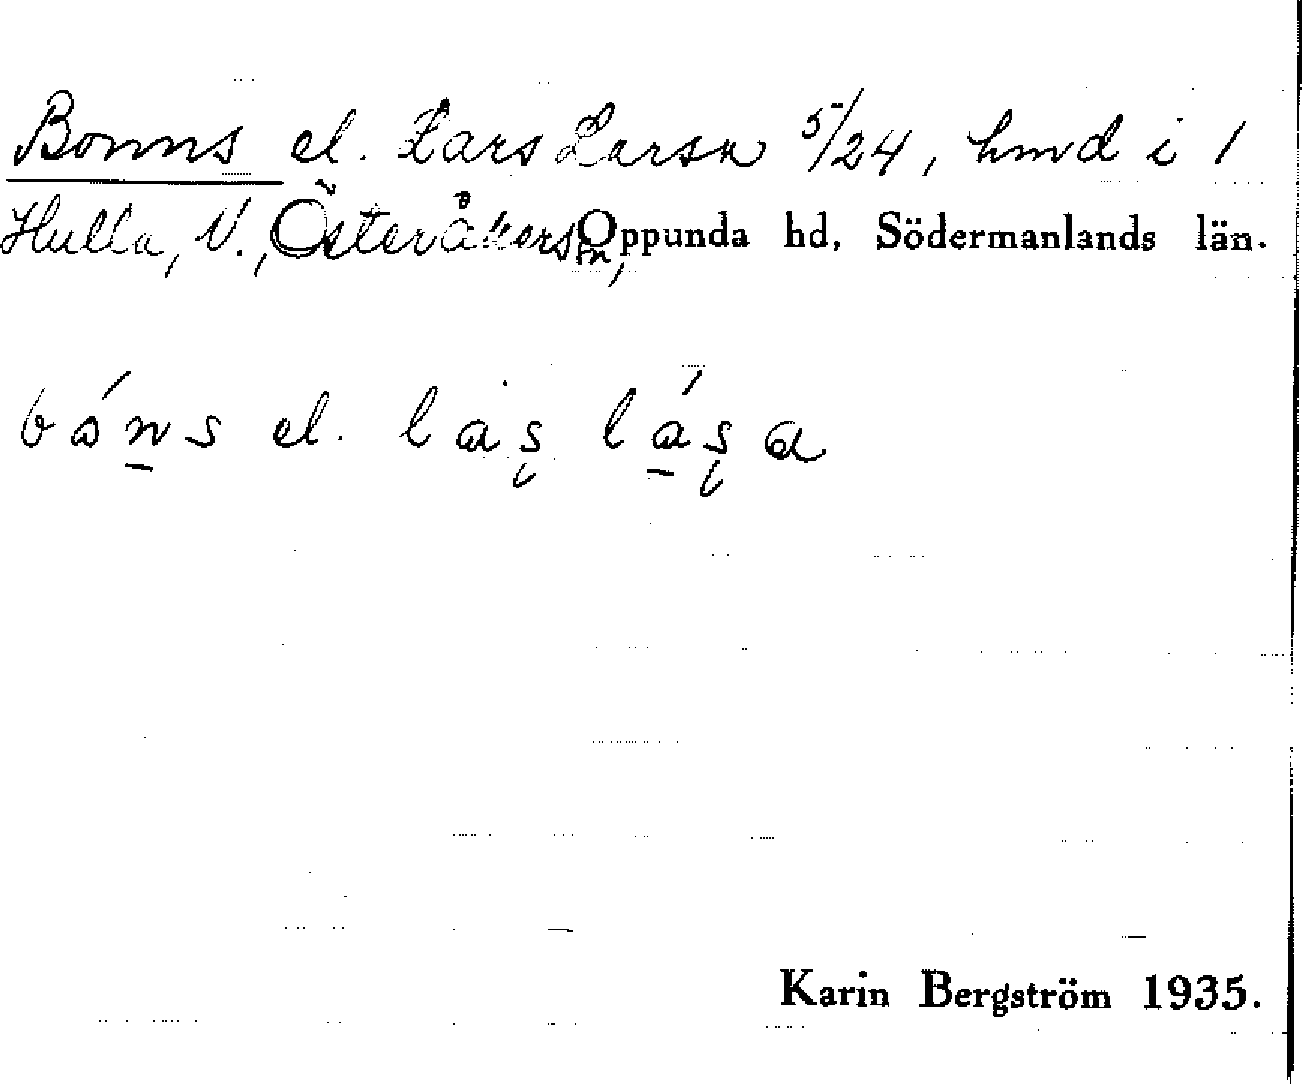 Bonns el. Lars Larsn 5/24, hmd i 1
Hulla, V., Österåkers sn, Oppunda hd, Södermanlands län.
bóns el. las lása
Karin Bergström 1935.